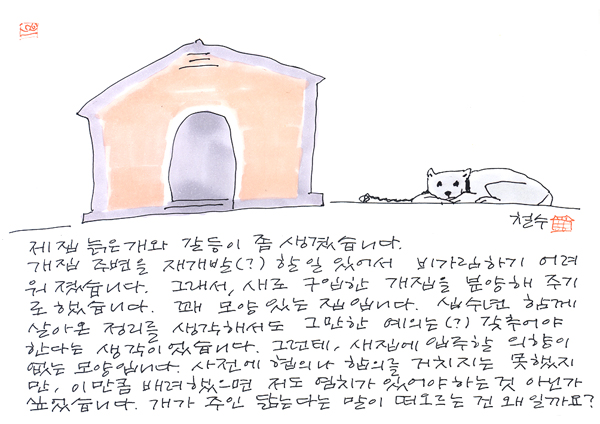 철수
제집 늙은개와 갈등이 좀 생겼습니다.
개집 주변을 재개발(?) 할 일 있어서 비가림하기 어려
워 졌습니다. 그래서, 새로 구입한 개집을 분양해 주기
로 했습니다. 꽤 모양 있는 집입니다. 십수년 함께
살아온 정리를 생각해서도 그만한 예의는(?) 갖추어야
한다는 생각이었습니다. 그런데, 새집에 입주할 의향이
없는 모양입니다. 사전에 협의나 합의를 거치지는 못했지
만, 이만큼 배려했으면 저도 염치가 있어야 하는 것 아닌가
싶었습니다. 개가 주인 닮는다는 말이 떠오르는 건 왜일까요?